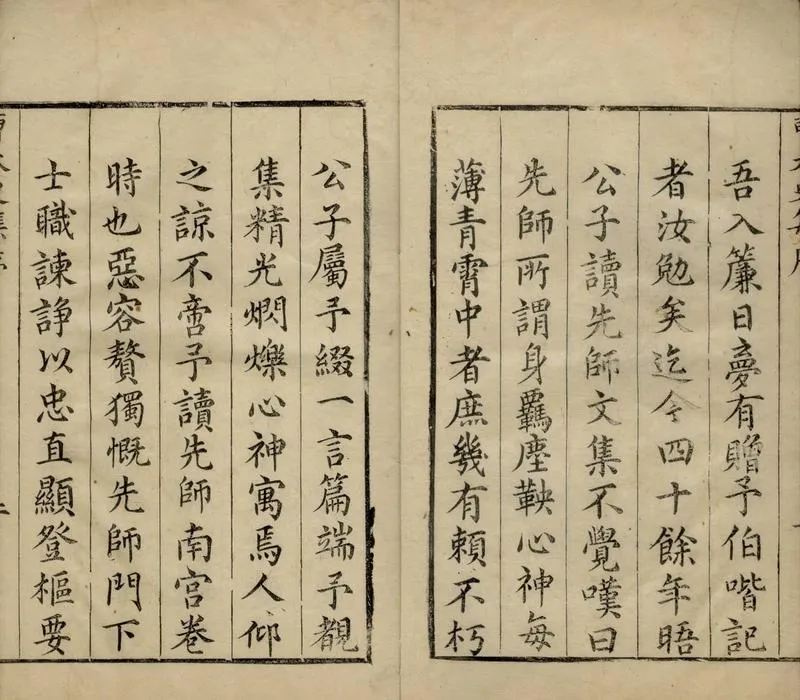 吾入簾日夢有贈予伯喈記
者汝勉矣迄今四十餘年晤
公子讀先師文集不覺嘆曰
先師所謂身羈塵鞅心神每
薄青霄中者庶幾有賴不朽
公子屬予綴一言篇端予覩
集精光爛爍心神寓焉人仰
之諒不啻予讀先師南宮卷
時也惡容贅獨慨先師門下
士職諫諍以忠直顯登樞要